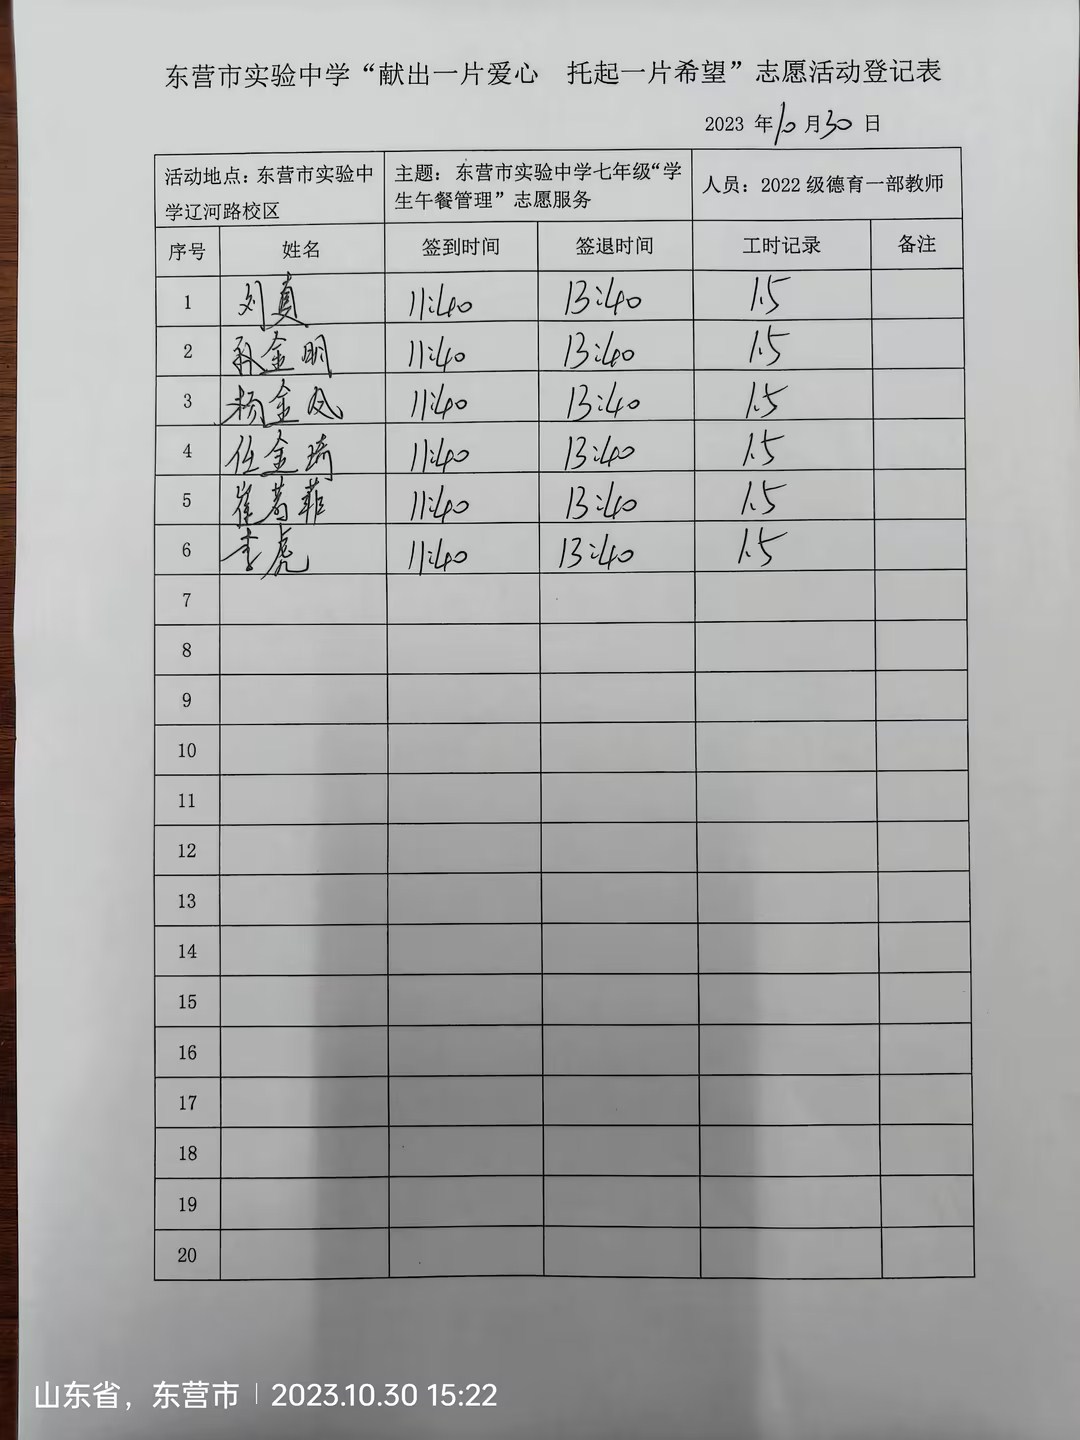 东营市实验中学“献出一片爱心　托起一片希望”志愿活动登记表
2023 年10月30 日
活动地点：东营市实验中
学辽河路校区
主题：东营市实验中学七年级“学
生午餐管理”志愿服务
人员：2022 级德育一部教师
序号 姓名 签到时间 签退时间 工时记录 备注
1 刘真 11:40 13:40 1.5
2 孙金明 11:40 13:40 1.5
3 杨金凤 11:40 13:40 1.5
4 任金琦 11:40 13:40 1.5
5 11:40 13:40 1.5
6 李虎 11:40 13:40 1.5
7
8
9
10
11
12
13
14
15
16
17
18
19
20
山东省，东营市 2023.10.30 15:22